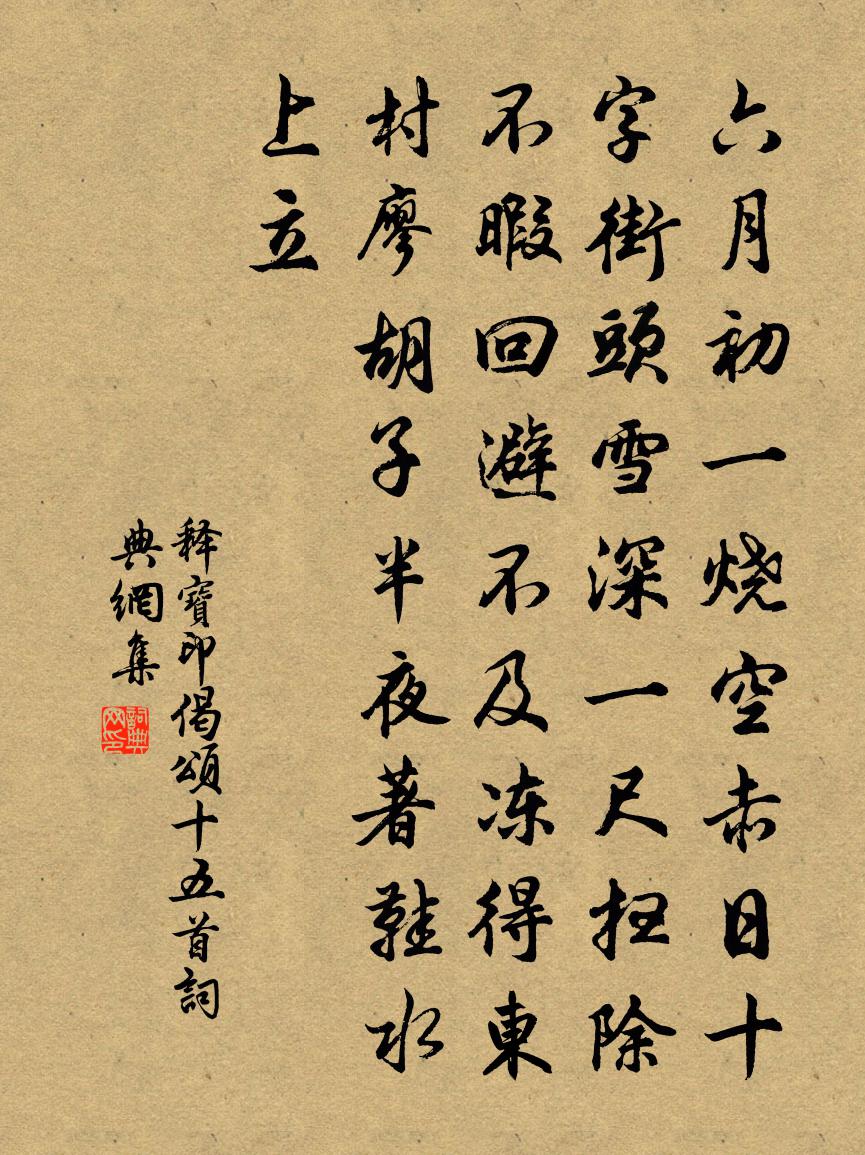 六月初一烧空赤日十
字街頭雪深一尺扫除
不暇回避不及冻得東
村廖胡子半夜著鞋水
上立
释寶印偈頌十五首詞
典網集
詞典網印